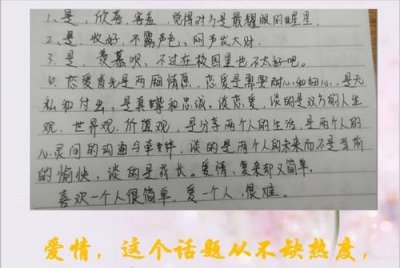 1、是，欣喜、害羞，觉得对方是最耀眼的星星.
2、是，收好，不露声色，闷声发大财.
3、是，羡慕呗，不过在校园里也不太好吧。
4、恋爱首先是两厢情愿，恋爱是需要耐心和细心，是无
私和付出，是真挚和忠诚。谈恋爱，谈的是双方的人生
观，世界观，价值观，是分享两个人的生活，是两个人的
心灵间的沟通与，谈的是两个人的未来而不是当前
的愉快，谈的是成长。爱情，复杂却又简单，
喜欢一个人很简单，爱一个人，很难。
爱情，这个话题从不缺热度，